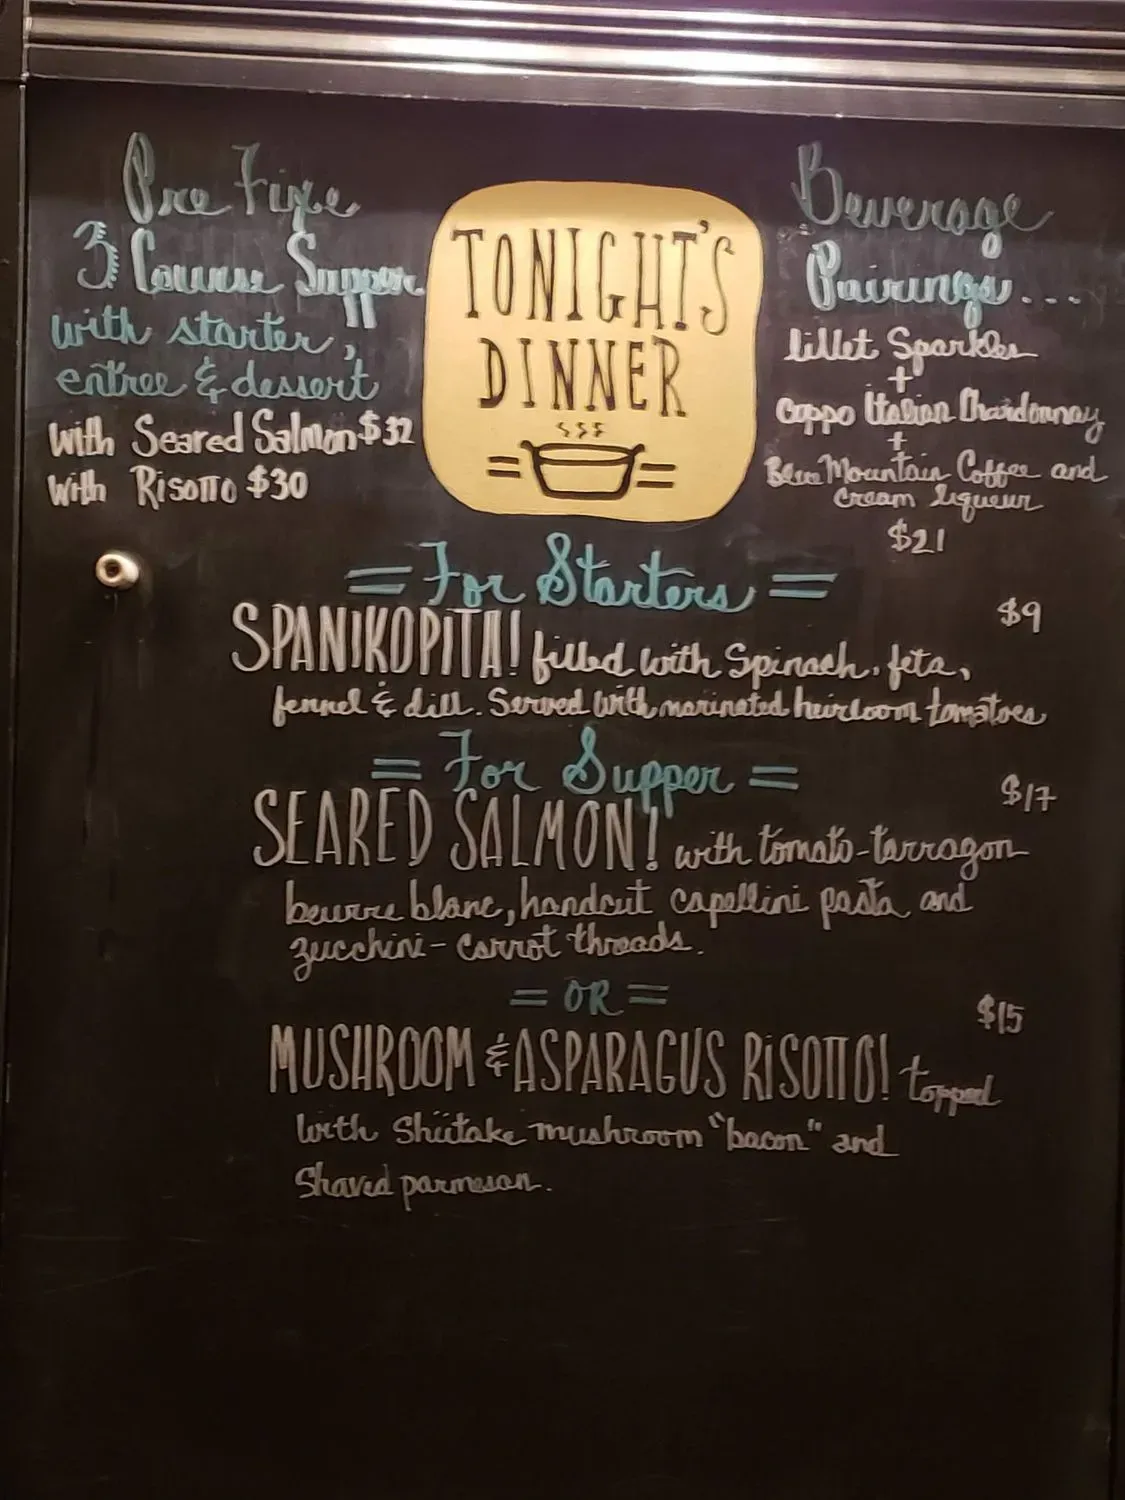 Pre Fixe
3 Course Supper
with starter,
entree & dessert
with Seared Salmon $32
with Risotto $30
TONIGHT'S
DINNER
Beverage
Pairings...
lillet Sparkler
+
coppo Italian Chardonnay
+
Blue Mountain Coffee and
cream liqueur
$21
= For Starters =
$9
SPANIKOPITA! filled with Spinach, feta,
fennel & dill. Served with marinated heirloom tomatoes
= For Supper =
$17
SEARED SALMON! with tomato-tarragon
beurre blanc, handcut capellini pasta and
zucchini-carrot threads.
= OR =
$15
MUSHROOM & ASPARAGUS RISOTTO! topped
with Shiitake mushroom "bacon" and
Shaved parmesan.